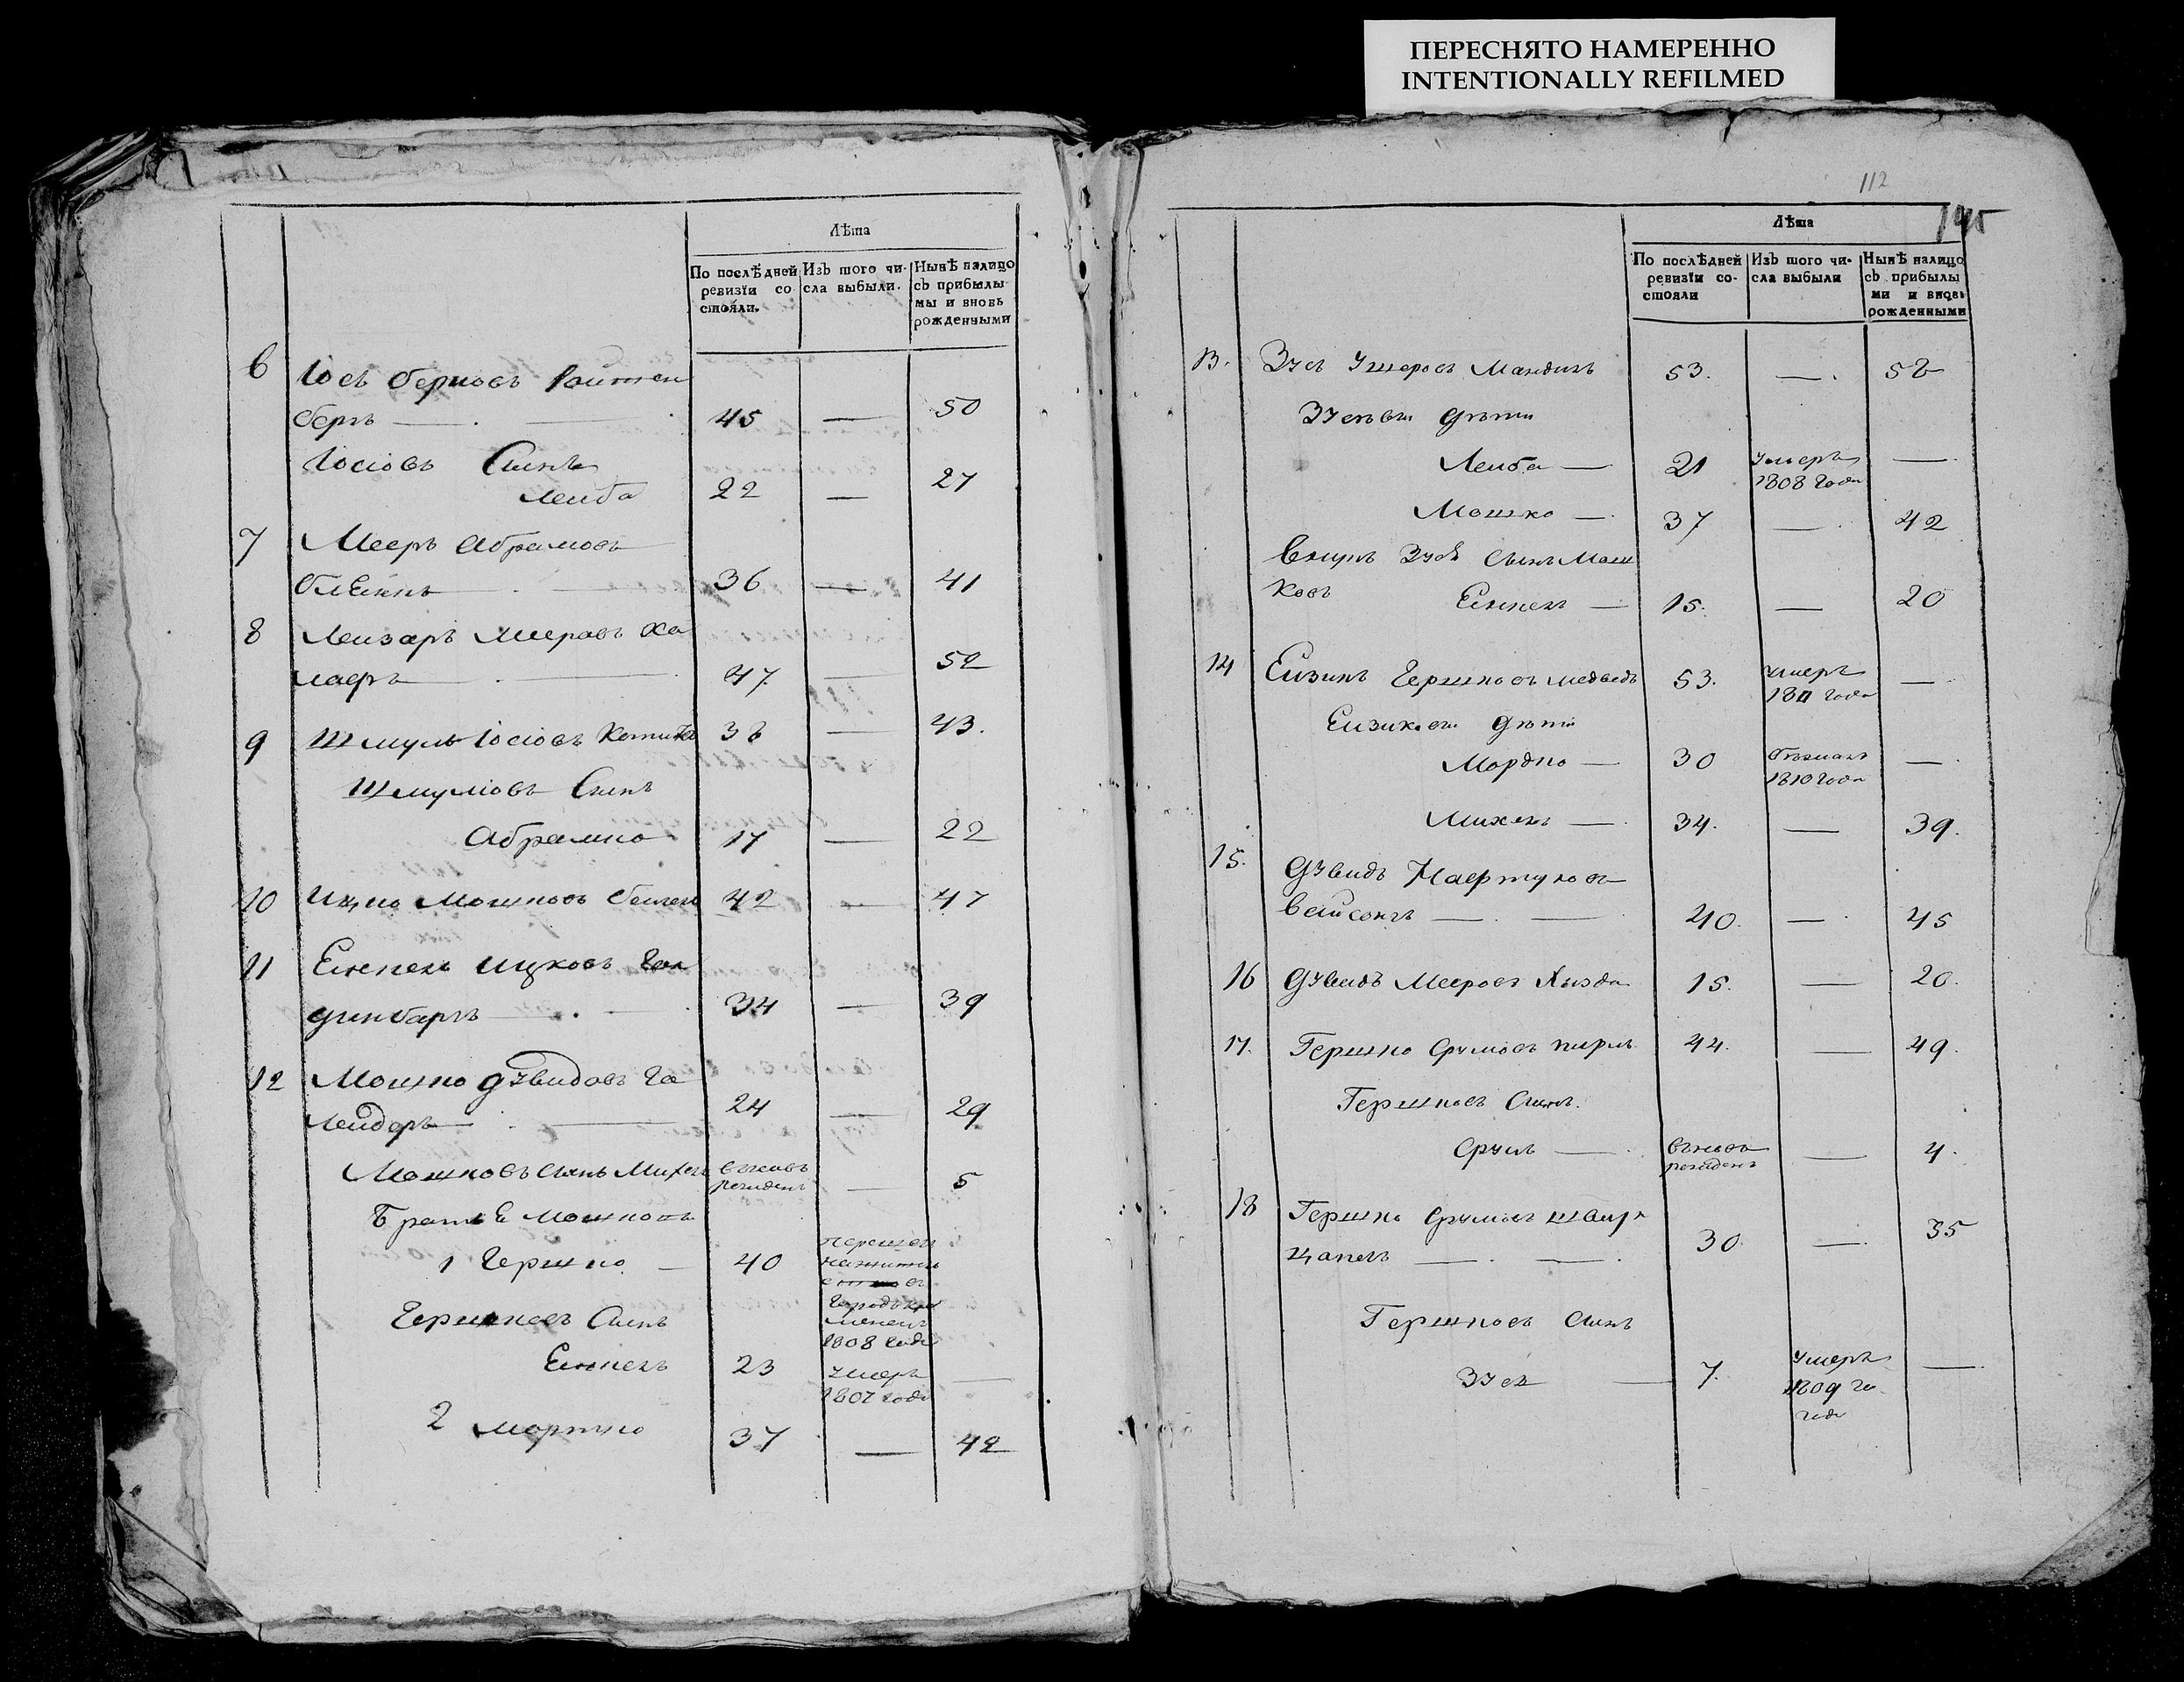 ПЕРЕСНЯТО НАМЕРЕННО
INTENTIONALLY REFILMED
Лѣта
По послѣдней ревизїи состояли.
Изъ того числа выбыли.
Нынѣ налицо съ прибылыми и вновь рожденными
6 Іось Берковъ Ройтен
беръ 45 — 50
Іосіовъ Сынъ
Леиба 22 — 27
7 Мееръ Абрамовъ
36 — 41
8 Леизаръ Мееровъ Ко
47 — 52
9 Шмуль Іосіовъ 38 — 43.
Шмуліовъ Сынъ
Абрамко 17 — 22
10 Ицко Мошковъ 42 — 47
11 Ицковъ Гол
динбаръ 34 — 39
12 Мошко Дувидовъ Го
лендеръ 24 — 29
Мошковъ сынъ Михель вьновь рожденъ — 5
Братьѣ Мошковы
1 Гершко — 40 перешелъ
1808 года
Гершковъ Сынъ
23 умеръ 1807 года —
2 Мортко 37 — 42
112
145
Лѣта
По послѣдней ревизїи состояли
Изъ того числа выбыли
Нынѣ налицо съ прибылыми и вновь рожденными
13. Зусь Ушеровъ Мандикъ 53. — 58
Зусевы дѣти
Леиба — 21 умеръ 1808 года —
Мошко — 37 — 42
Внукъ Зуся сынъ Мош
ковъ — 15. — 20
14 Ейзикъ Гершковъ Медведь 53. умеръ 1811 года —
Еизиковы дѣти
Мордко — 30 бѣжалъ 1810 года —
Михель — 34. — 39.
15. Дувидъ
Вайсонъ — 40. — 45
16 Дувидъ Мееровъ 15. — 20.
17. Гершко Срулiовъ 44. — 49.
Гершковъ Сынъ.
Сруль — вьновь рожденъ — 4.
18 Гершко Срулiовъ Шварц
цапель — 30. — 35
Гершковъ Сынъ
Зусь — 7. умеръ 1809 го года —